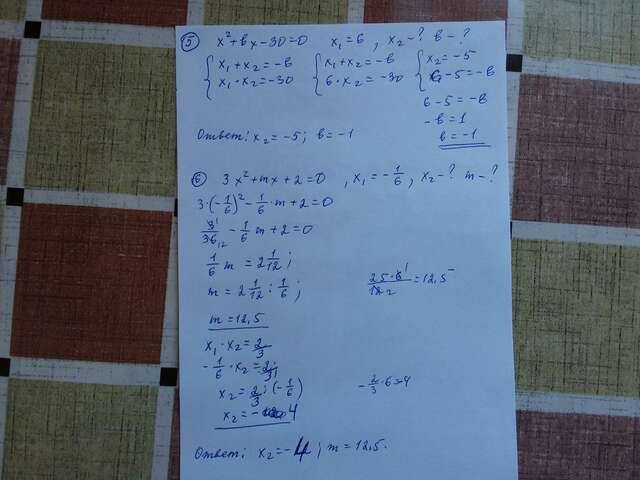 ⑤ x²+bx-30=0 x₁=6, x₂-? b-?
{ x₁+x₂=-b { x₁+x₂=-b { x₂=-5
x₁·x₂=-30 6·x₂=-30 6-5=-b
6-5=-b
-b=1
b=-1
Ответ: x₂=-5; b=-1
⑥ 3x²+mx+2=0, x₁=-1/6, x₂-? m-?
3·(-1/6)²-1/6·m+2=0
3¹/36₁₂-1/6m+2=0
1/6m=2 1/12;
m=2 1/12:1/6; 25·6¹/12₂=12,5
m=12,5
x₁·x₂=2/3
-1/6·x₂=2/3;
x₂=2/3:(-1/6) -2/3·6=4
x₂=-4
Ответ: x₂=-4; m=12,5.